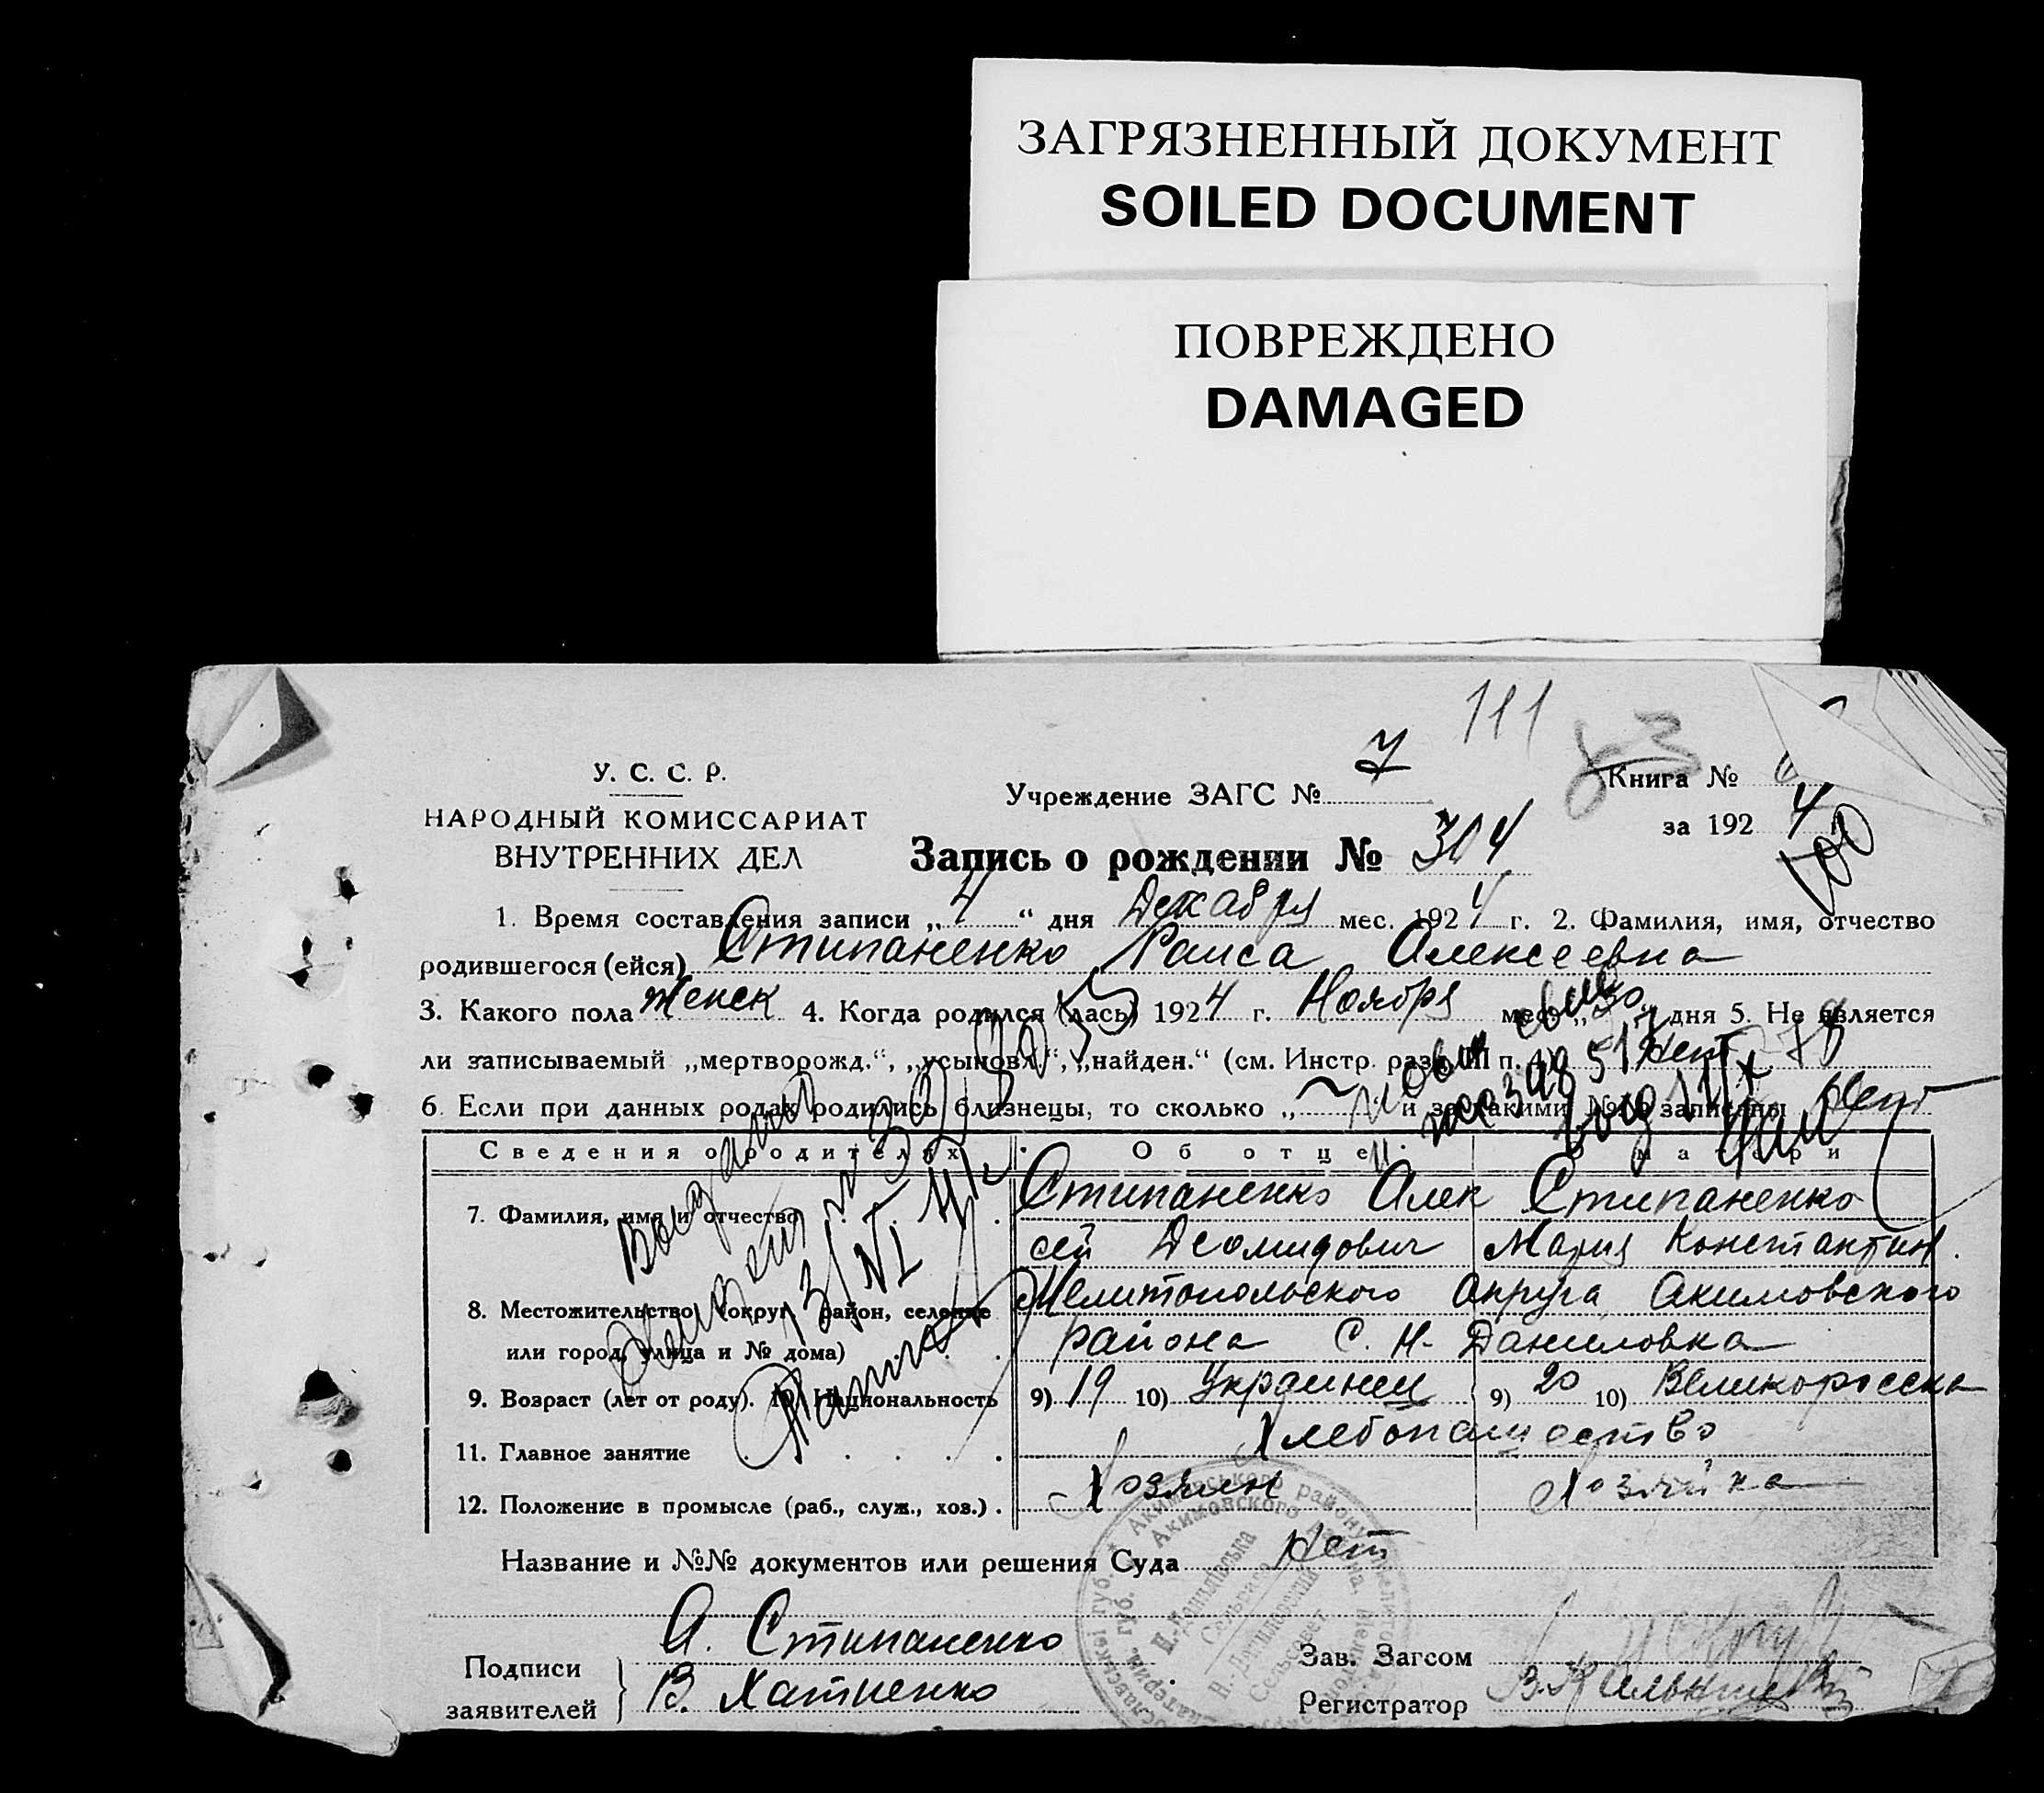 ЗАГРЯЗНЕННЫЙ ДОКУМЕНТ
SOILED DOCUMENT
ПОВРЕЖДЕНО
DAMAGED
111
У. С. С. Р.
НАРОДНЫЙ КОМИССАРИАТ
ВНУТРЕННИХ ДЕЛ
Учреждение ЗАГС № 7
Книга №
за 1924
Запись о рождении № 304
1. Время составления записи „4“ дня Декабря мес. 1924 г. 2. Фамилия, имя, отчество
родившегося (ейся) Стипаненко Раиса Алексеевна
3. Какого пола женск 4. Когда родился (лась) 1924 г. Ноября мес. „30“ дня 5. Не является
ли записываемый „мертворожд.“, „усыновл.“, „найден.“ (см. Инстр. разд. III п. 4) Нет
6. Если при данных родах родились близнецы, то сколько „ “ и за какими №№ записаны Нет
Сведения о родителях Об отце О матери
7. Фамилия, имя и отчество Стипаненко Алек Стипаненко
сей Деомидович Мария Константин.
8. Местожительство (округ, район, селение Мелитопольского Округа Акимовского
или город, улица и № дома) района С. Н-Даниловка
9. Возраст (лет от роду). 10. Национальность 9) 19 10) Украинец 9) 20 10) Великоросска
11. Главное занятие Хлебопашество
12. Положение в промысле (раб., служ., хоз.) Хозяин Хозяйка
Название и №№ документов или решения Суда Нет
Подписи заявителей
А. Стипаненко
В. Хатиенко
Зав. Загсом
Регистратор
Н.-Даниловский
Сельсовет